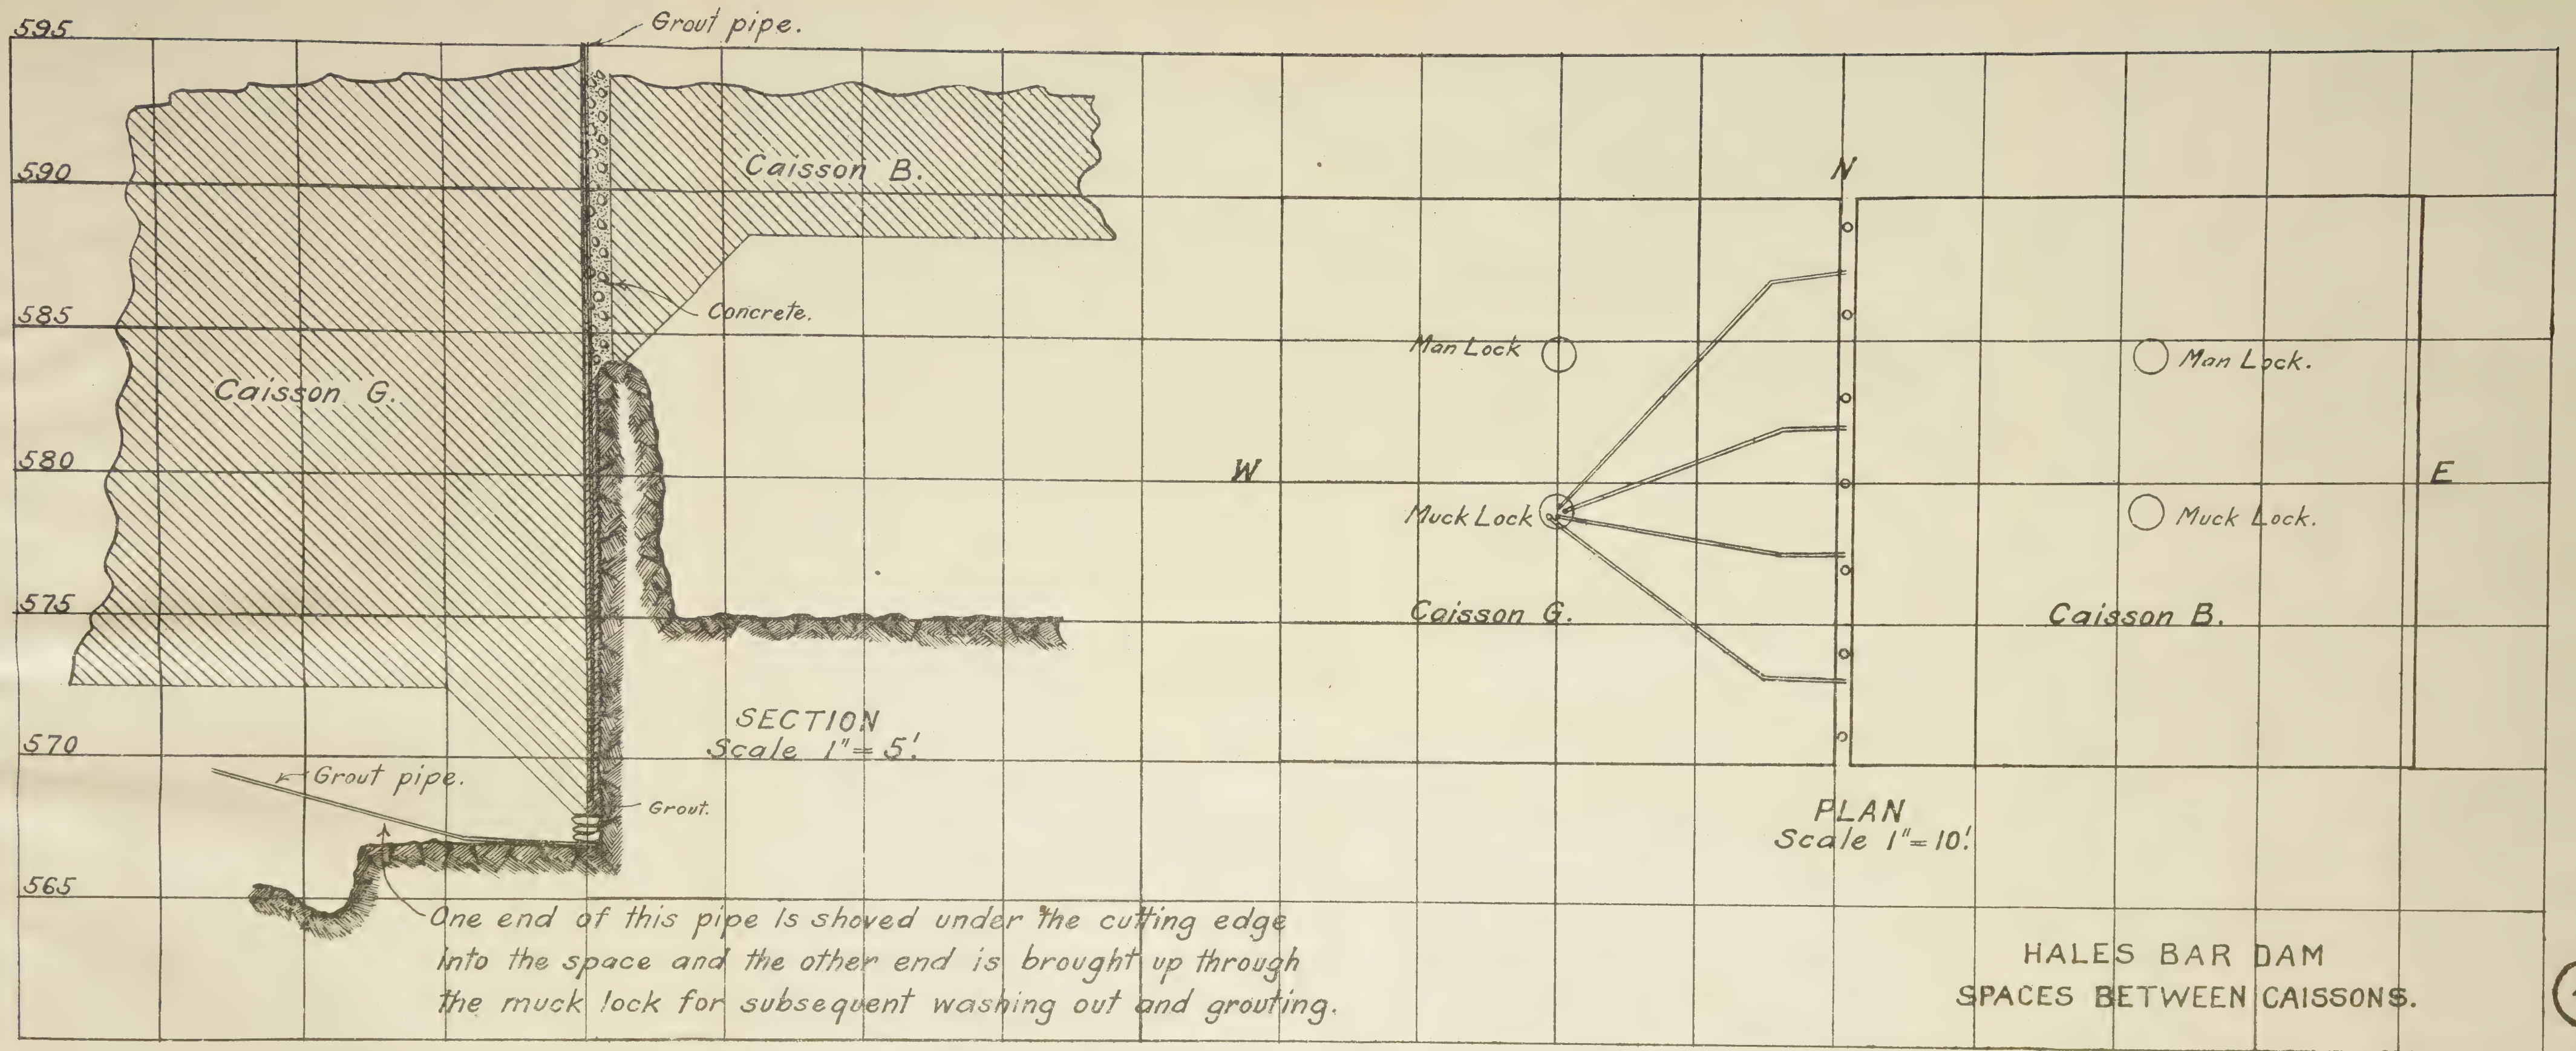 595
Grout pipe.
590
Caisson B.
585
Concrete.
Caisson G.
580
575
SECTION
Scale 1"= 5'.
570
Grout pipe.
Grout.
565
One end of this pipe is shoved under the cutting edge
into the space and the other end is brought up through
the muck lock for subsequent washing out and grouting.
N
Man Lock
Man Lock.
W
E
Muck Lock
Muck Lock.
Caisson G.
Caisson B.
PLAN
Scale 1"= 10'.
HALES BAR DAM
SPACES BETWEEN CAISSONS.